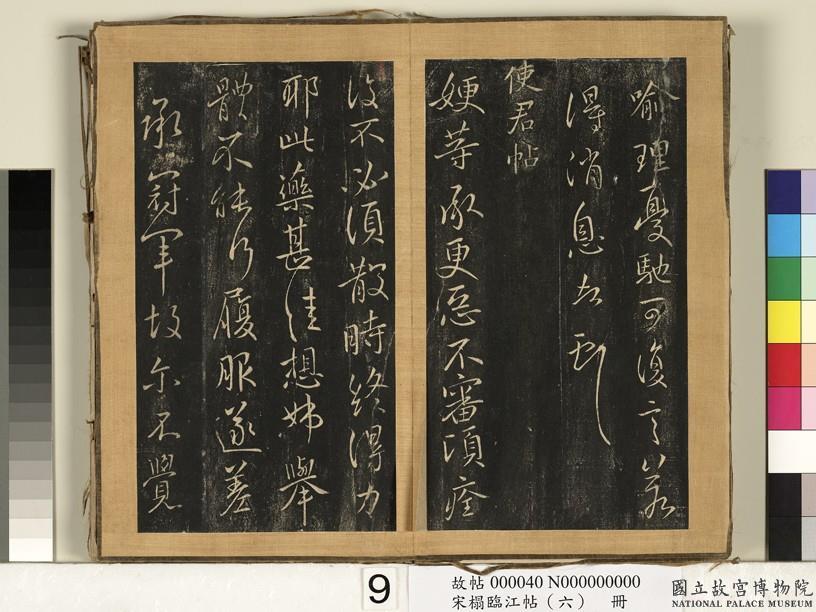 喻理憂馳可復言若
得消息
使君帖
嫂等承更惡不審頃痊
復不必須散時終得力
耶此藥甚佳想姊舉
體不能行履服遂差
承冠軍故尔不覺
9
故帖 000040 N000000000
宋榻臨江帖（六） 冊
國立故宮博物院
NATIONAL PALACE MUSEUM